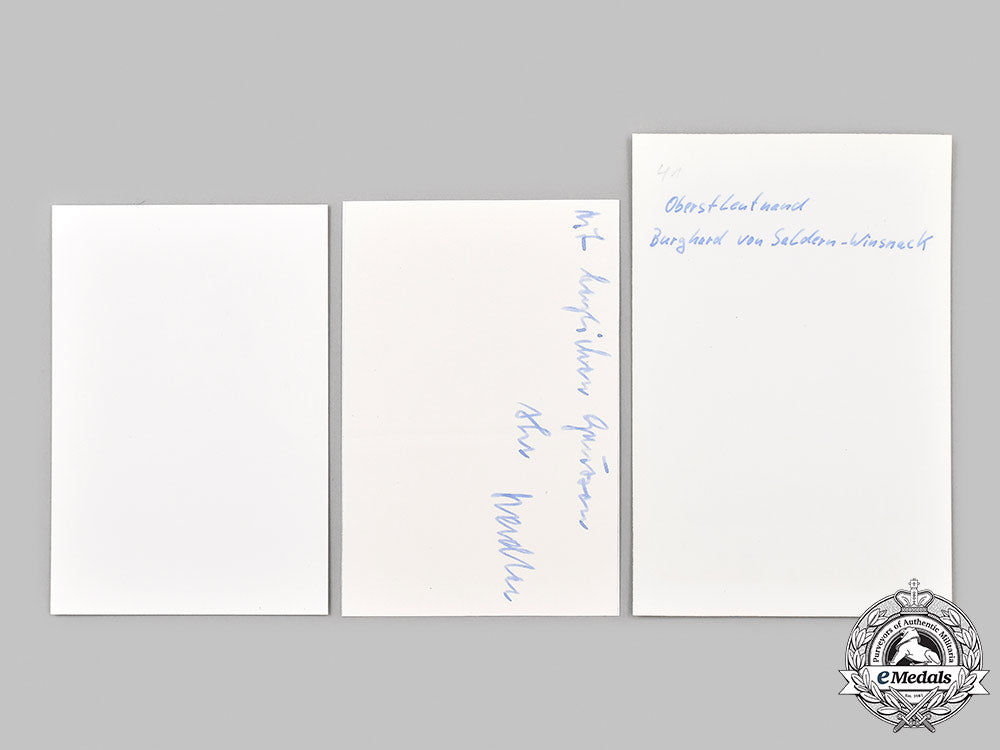 Mit herzlichen Grüssen
Ihr
41
Oberstleutnand
Burghard von Saldern-Winsnack
Purveyors of Authentic Militaria
eMedals
Est. 1987